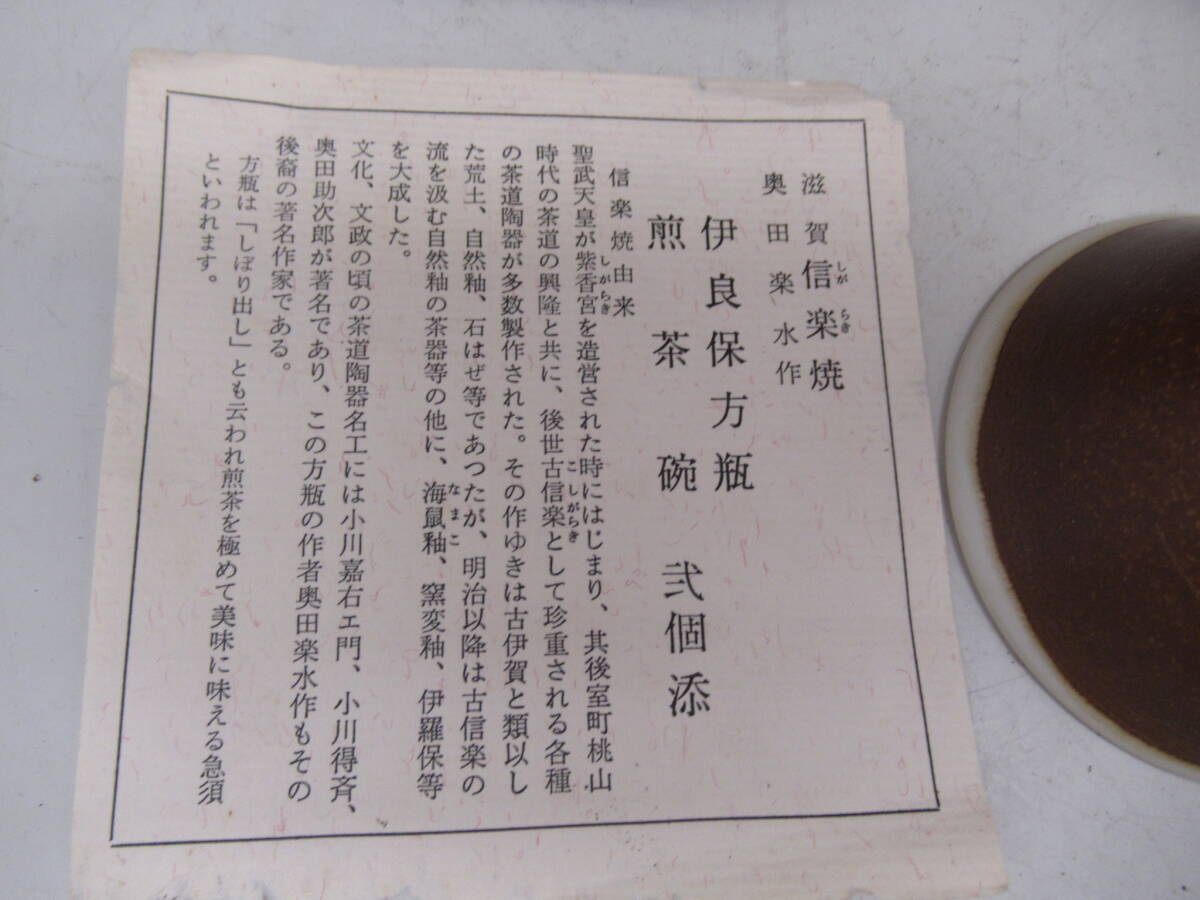 滋賀信楽焼
奥田楽水作
伊良保方瓶
煎茶碗 弐個添
信楽焼由来
聖武天皇が紫香宮を造営された時にはじまり、其後室町桃山
時代の茶道の興隆と共に、後世古信楽として珍重される各種
の茶道陶器が多数製作された。その作ゆきは古伊賀と類以し
た荒土、自然釉、石はぜ等であつたが、明治以降は古信楽の
流を汲む自然釉の茶器等の他に、海鼠釉、窯変釉、伊羅保等
を大成した。
文化、文政の頃の茶道陶器名工には小川嘉右エ門、小川得斉、
奥田助次郎が著名であり、この方瓶の作者奥田楽水作もその
後裔の著名作家である。
方瓶は「しぼり出し」とも云われ煎茶を極めて美味に味える急須
といわれます。